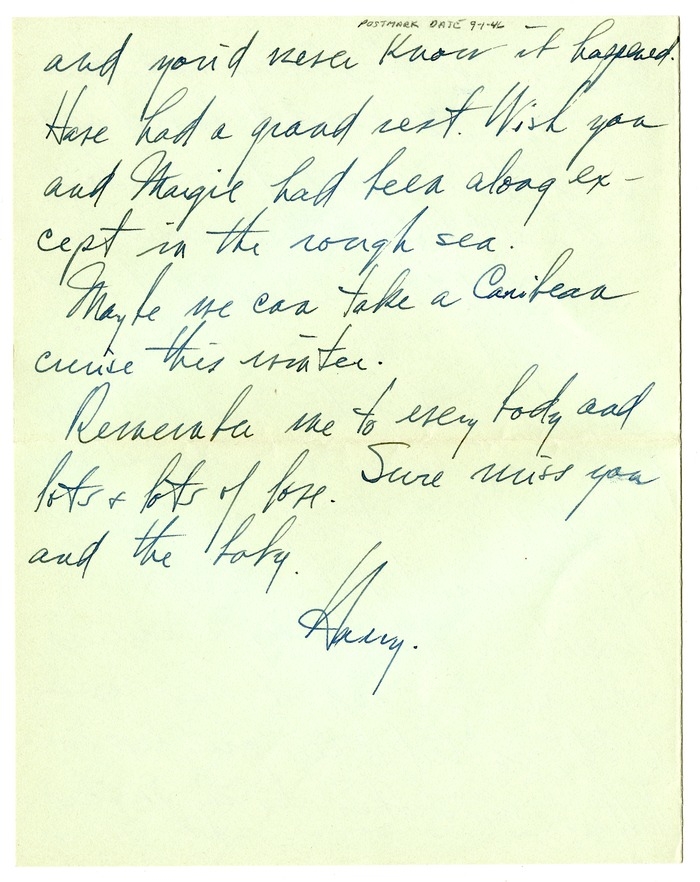 POSTMARK DATE 9-1-46
and you'd never know it happened.
Have had a grand rest. Wish you
and Margie had been along ex-
cept in the rough sea.
Maybe we can take a Caribean
cruise this winter.
Remember me to every body and
lots & lots of love. Sure miss you
and the baby.
Harry.